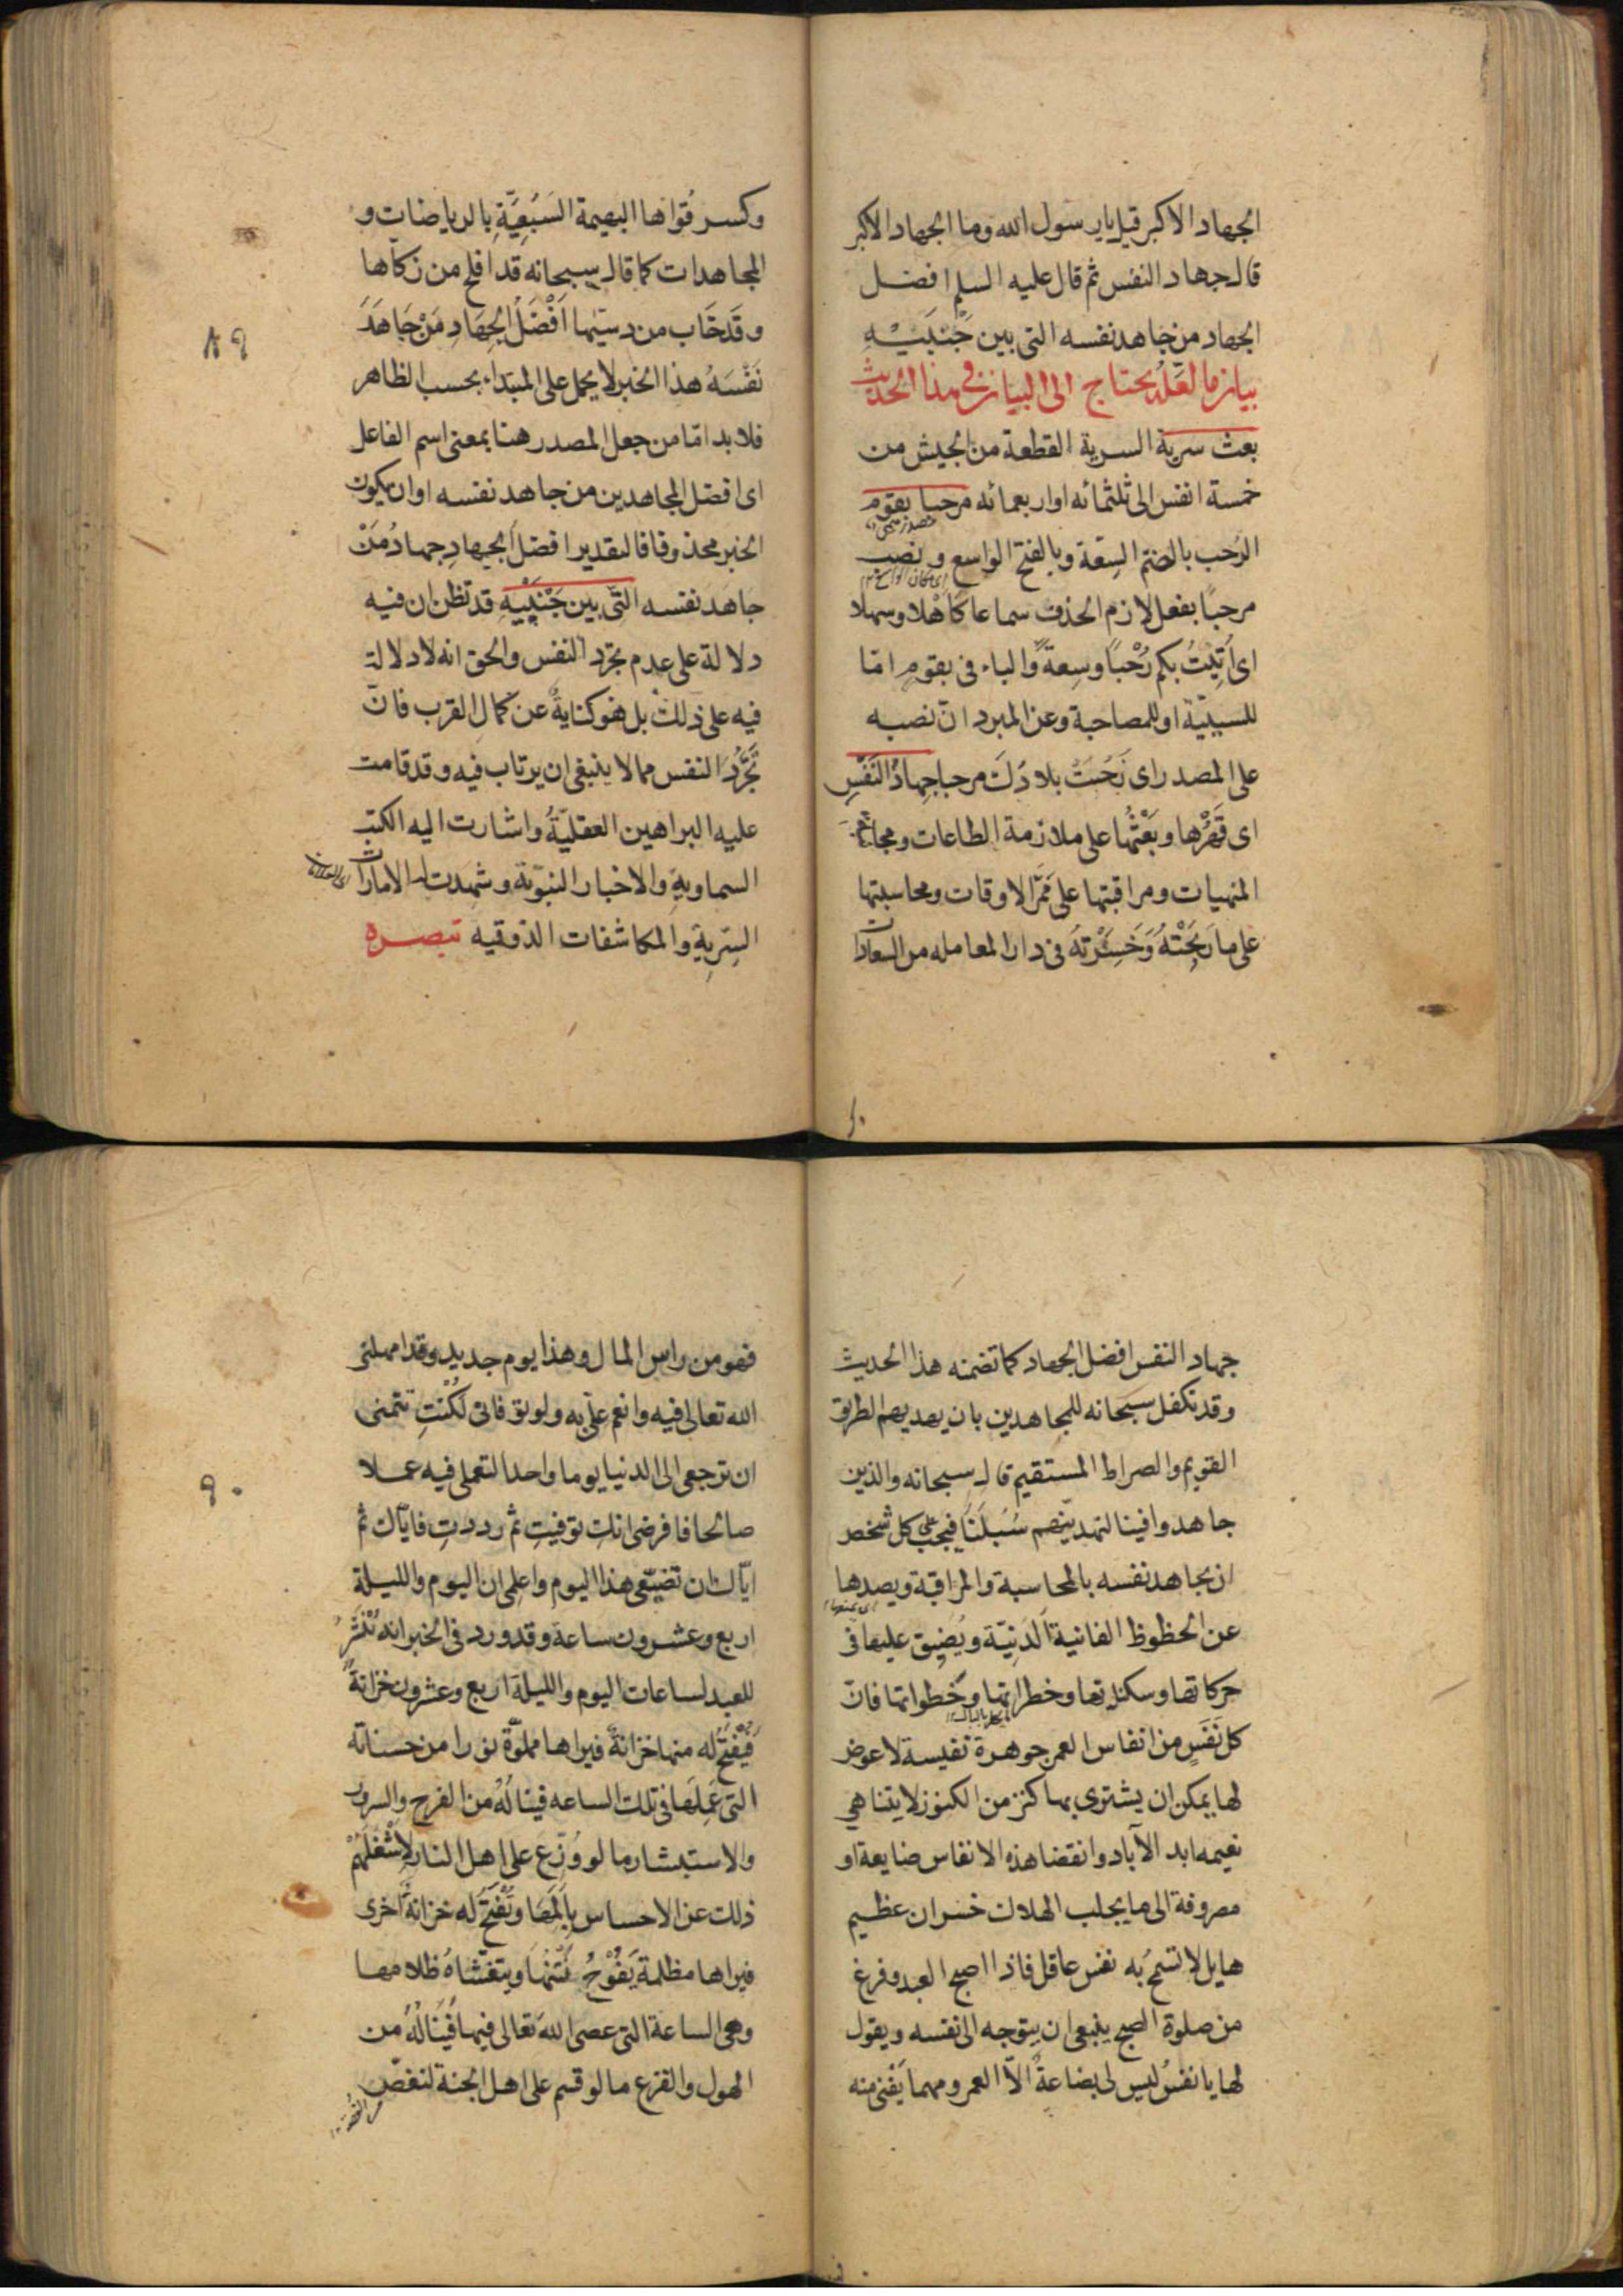 الجهاد الاكبر قيل يا رسول الله وما الجهاد الاكبر
قال جهاد النفس ثم قال عليه السلم افضل
الجهاد من جاهد نفسه التى بين جَنبَيْهِ
بيان ما لعَلّه يحتاج الى البيان فى هذا الحديث
بعث سرية السرية القطعة من الجيش من
خمسة انفس الى ثلثمائه او اربعمائه مرحبا بقوم
الرُحب بالضم السِعَة وبالفتح الواسع ونصب
مرحبًا بفعل لازم الحذف سماعا كَاهْلا وسهلا
اى اَتيْتُ بكم رُحْبًا وسِعةً والباء فى بقومٍ امّا
للسببيّة او للمصاحبة وعن المبرد انّ نصبه
على المصدر اى رَحُبَتْ بلادُكَ مرحبا جِهادُ النَفْسِ
اى قَهْرُها وبَعْثُها على ملازمة الطاعات ومجانبة
المنهيات ومراقبتها على مَمَرّ الاوقات ومحاسبتها
على ما رَبِحَتْهُ وَخَسِرَتهُ فى دار المعامله من السعادات
وكسر قُواها البهيمة السَبُعِيَّةِ بالرياضات و
المجاهدات كما قال سبحانه قد افلح من زكّاها
وقَد خَاب من دسّيها اَفْضَلُ الجِهَادِ مَنْ جَاهَدَ
نَفْسَهُ هذا الخبر لا يحمل على المبتداء بحسب الظاهر
فلا بد امّا من جعل المصدر هنا بمعنى اسم الفاعل
اى افضل المجاهدين من جاهد نفسه او ان يكون
الخبر محذوفا فالتقدير افضل الجهادِ جهادُ مَنْ
جاهَدَ نفسه التّى بين جَنْبَيْهِ قد تظن ان فيه
دلالة على عدم تجرّد النفس والحق انه لا دلالة
فيه على ذلك بل هو كنايةٌ عن كمالِ القرب فانّ
تَجَرُّدَ النفس مما لا ينبغى ان يرتاب فيه وقد قامت
عليه البراهين العقليّةُ واشارت اليه الكتب
السماويةِ والاخبار النبوّية وشهِدت له الامارات
السِرّيةِ والمكاشفات الذوقيه تبصره
٨٩
جهاد النفس افضل الجهاد كما تضمنه هذا الحديث
وقد تكفل سبحانه للمجاهدين بان يهديهم الطريق
القويم والصراط المستقيم قال سبحانه والذين
جاهدوا فينا لنهدينّهم سُبُلَنَا فيجب على كل شخص
ان يجاهد نفسه بالمحاسبة والمراقبة ويصدها
عن الحظوظ الفانية الَدنِيّة ويُضيِق عليها فى
حركاتها وسكناتها وخطراتها وخَطواتها فانّ
كل نَفَسٍ من انفاس العمر جوهرة نفيسة لا عوض
لها يمكن ان يشترى بها كنز من الكنوز لا يتناهى
نعيمه ابد الآباد وانقضا هذه الانفاس ضايعة او
مصروفة الى ما يجلب الهلاك خسران عظيم
هايل لا تسمح به نفس عاقل فاذا اصبح العبد وفرغ
من صلوة الصبح ينبغى ان يتوجه الى نفسه ويقول
لها يا نفسُ ليس لى بضاعةٌ الاّ العمر ومهما يَفْنى منه
فهو من راس المال وهذا يوم جديد وقد امهلنى
الله تعالى فيه وانعم علىّ به ولو توفانى لكُنْتِ تتمنى
ان ترجعى الى الدنيا يوما واحدا لتعملى فيه عملا
صالحا فافرضى انكِ توفيتِ ثم رددتِ فايّاك ثم
ايّاك ان تضيّعى هذا اليوم واعلمى ان اليوم والليلة
اربع وعشرون ساعة وقد ورد فى الخبر انه تُنْشَرُ
للعبد لساعات اليوم والليلة اربع وعشرون خزانةً
فيُفْتَحُ له منها خزانةٌ فيراها مملوّة نورا من حسناته
التى عَمِلَها فى تلك الساعه فينالُهُ من الفرح والسرور
والاستبشار ما لو وُزّع على اهل النار لاشغَلَهُمْ
ذلك عن الاحساس بِاَلَمَها وتُفْتَحُ له خزانةٌ اخرى
فيراها مظلمة يَفُوْحُ نَتْنُها ويتغشّاهُ ظلامها
وهى الساعة التى عصى الله تعالى فيها فيَنَالُهُ من
الهول والفزع ما لو قسم على اهل الجنة لنغصّ
٩٠